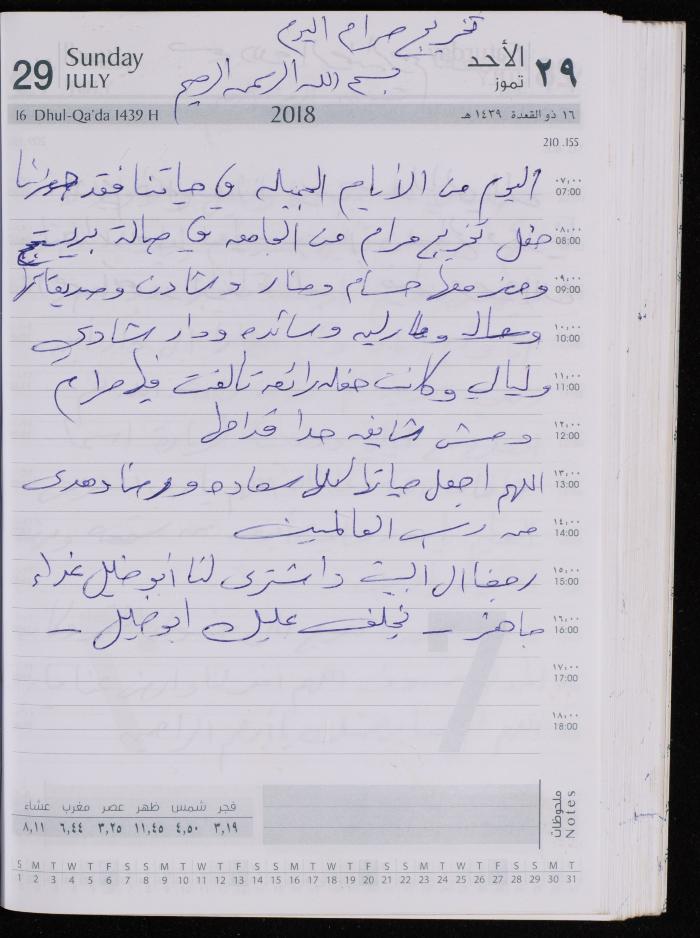 تخريج مرام اليوم
29 Sunday JULY الأحد تموز ٢٩
بسم الله الرحمن الرحيم
16 Dhul-Qa'da 1439 H 2018 ١٦ ذو القعدة ١٤٣٩ هـ
210 .155
اليوم من الأيام الجميله في حياتنا فقد حضرنا ٠٧,٠٠ 07:00
حفل تخريج مرام من الجامعه في صالة بريستيج ٠٨,٠٠ 08:00
وحضر معها حسام ومنار وشادن وصديقاتها ٠٩,٠٠ 09:00
وسائده ودار شادي ١٠,٠٠ 10:00
وليالي وكانت حفله رائعه تألقت فيها مرام ١١,٠٠ 11:00
ومش شايفه حدا قدامها ١٢,٠٠ 12:00
اللهم اجعل حياتها كلها سعاده وهدى ١٣,٠٠ 13:00
رب العالمين ١٤,٠٠ 14:00
رجعنا ال البيت واشترى لنا أبو خليل غداء ١٥,٠٠ 15:00
جاهز - يخلف عليك ابو خليل - ١٦,٠٠ 16:00
١٧,٠٠ 17:00
١٨,٠٠ 18:00
7
ملحوظات Notes
فجر شمس ظهر عصر مغرب عشاء
٣,١٩ ٤,٥٠ ١١,٤٥ ٣,٢٥ ٦,٤٤ ٨,١١
S M T W T F S S M T W T F S S M T W T F S S M T W T F S S M T
1 2 3 4 5 6 7 8 9 10 11 12 13 14 15 16 17 18 19 20 21 22 23 24 25 26 27 28 29 30 31